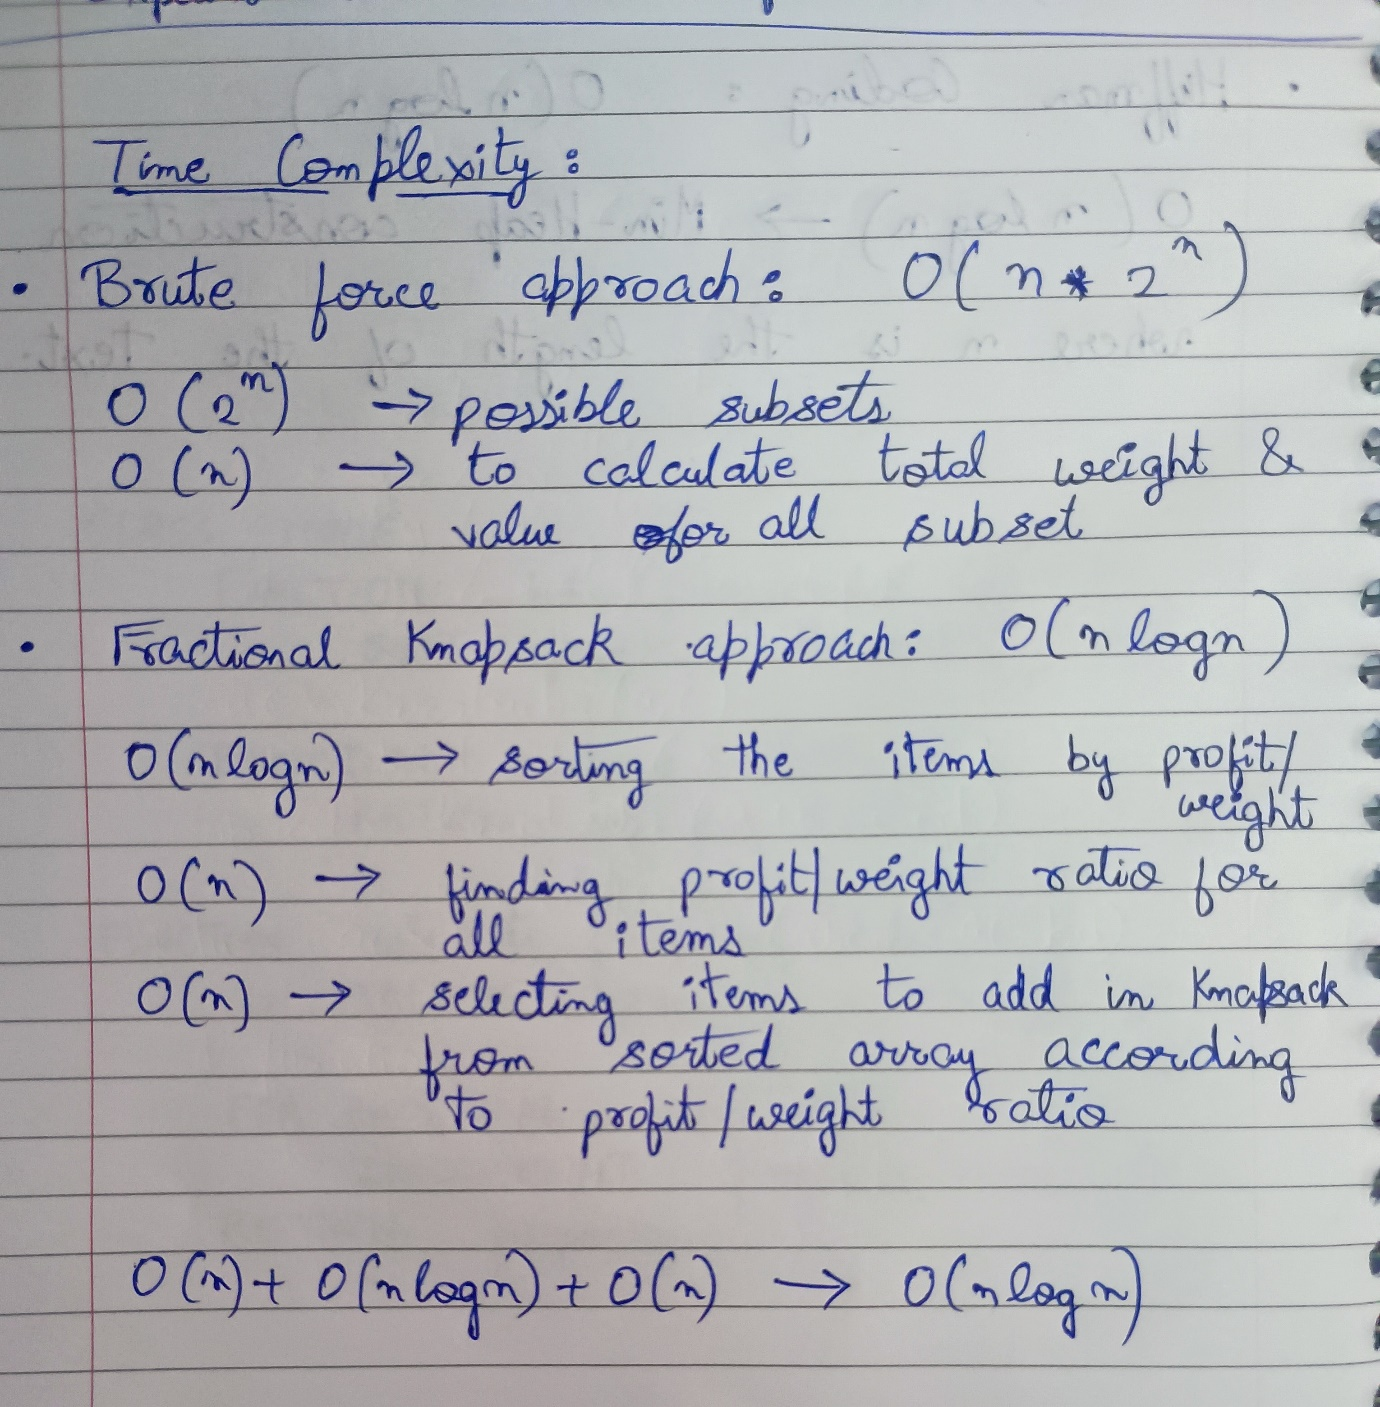 Time Complexity :
• Brute force approach : O( n * 2^n )
O (2^n) → possible subsets
O (n) → to calculate total weight &
value for all subset
• Fractional Knapsack approach : O(n logn)
O(nlogn) → sorting the items by profit/
weight
O(n) → finding profit/weight ratio for
all items
O(n) → selecting items to add in Knapsack
from sorted array according
to profit / weight ratio
O(n) + O(nlogn) + O(n) → O(nlogn)